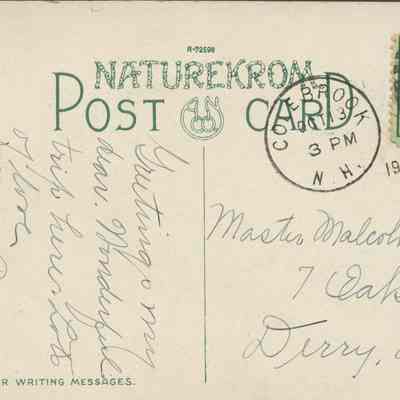 R-72598
NATUREKROM
POST CARD
COLEBROOK
OCT 13
3 PM
N.H.
19
Greetings my
dear. Wonderful
trip here. Lots
of love
Master Malcol
7 Oak
Derry,
R WRITING MESSAGES.